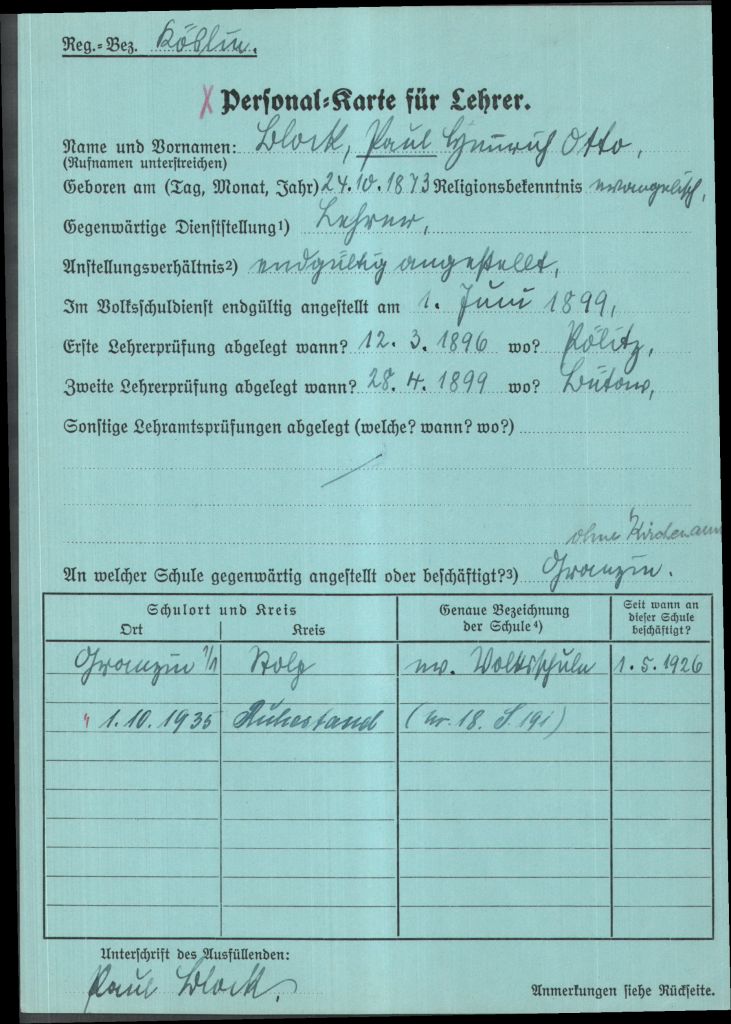 Reg.-Bez. Köslin.
Personal-Karte für Lehrer.
Name und Vornamen: Block, Paul Heinrich Otto,
(Rufnamen unterstreichen)
Geboren am (Tag, Monat, Jahr) 24.10.1873 Religionsbekenntnis evangelisch,
Gegenwärtige Dienststellung¹) Lehrer,
Anstellungsverhältnis²) endgültig angestellt,
Im Volksschuldienst endgültig angestellt am 1. Juni 1899,
Erste Lehrerprüfung abgelegt wann? 12. 3. 1896 wo? Pölitz,
Zweite Lehrerprüfung abgelegt wann? 28. 4. 1899 wo? Bütow,
Sonstige Lehramtsprüfungen abgelegt (welche? wann? wo?)
ohne Kirchenamt
An welcher Schule gegenwärtig angestellt oder beschäftigt?³) Granzin.
Schulort und Kreis Genaue Bezeichnung der Schule⁴) Seit wann an dieser Schule beschäftigt?
Ort Kreis
Granzin Stolp ev. Volksschule 1. 5. 1926
1. 10. 1935 Ruhestand
Unterschrift des Ausfüllenden:
Paul Block.
Anmerkungen siehe Rückseite.